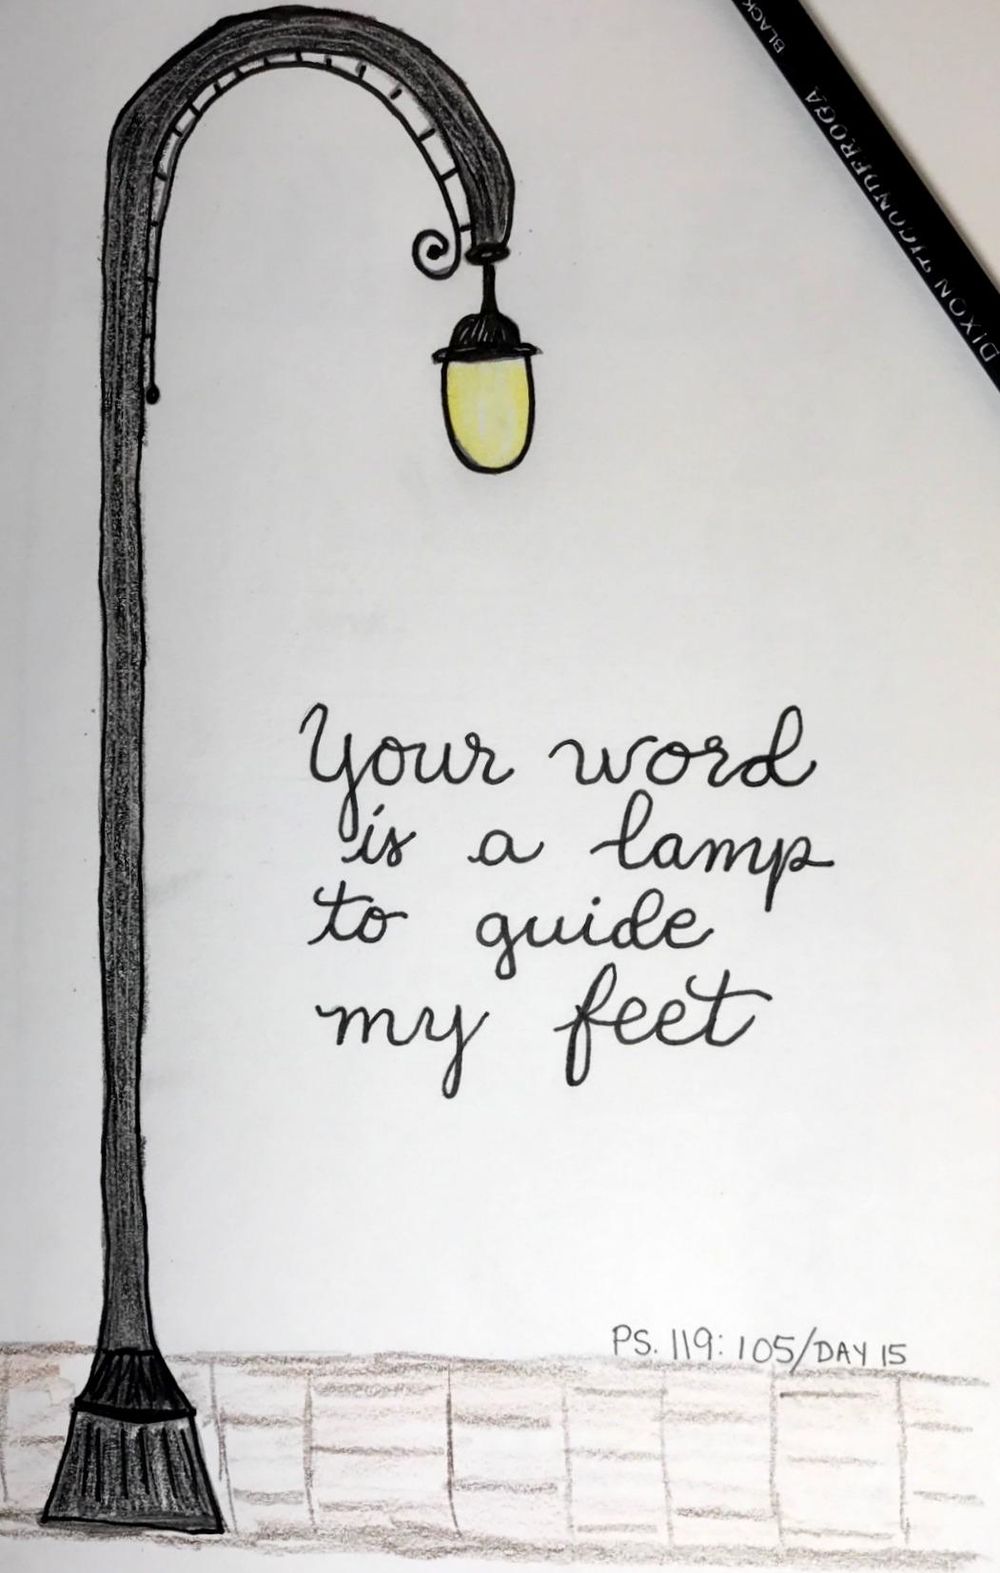 BLACK
DIXON TICONDEROGA
Your word
is a lamp
to guide
my feet
PS. 119: 105/DAY 15